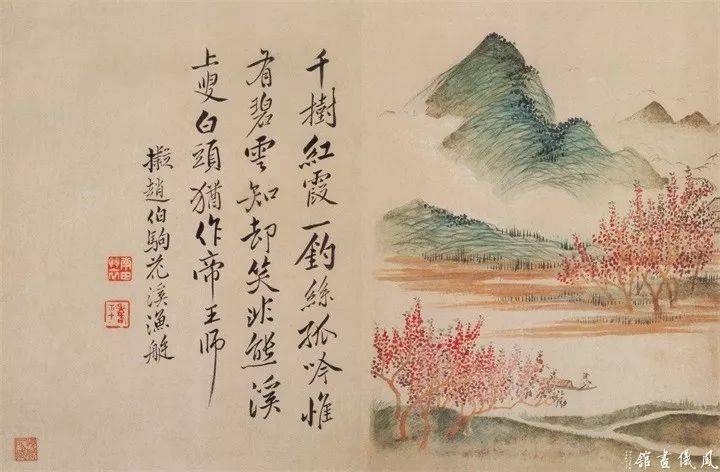 千樹紅霞一釣絲孤吟惟
有碧雲知却笑非熊溪
上叟白頭猶作帝王師
擬趙伯駒花溪漁艇
南田草衣
壽平
鳳儀書館